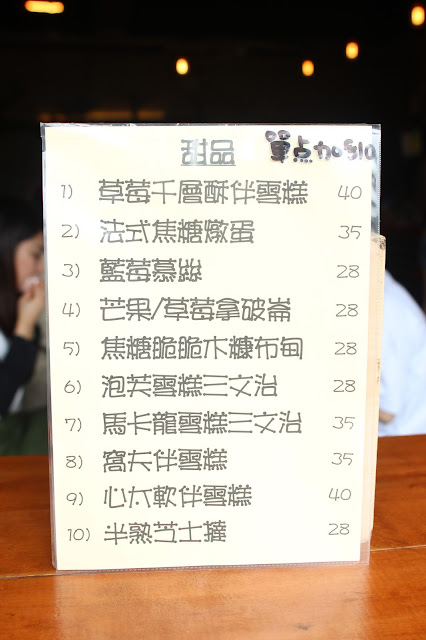 甜品 單点加$10
1) 草莓千層酥伴雪糕 40
2) 法式焦糖燉蛋 35
3) 藍莓慕絲 28
4) 芒果/草莓拿破崙 28
5) 焦糖脆脆木糠布甸 28
6) 泡芙雪糕三文治 28
7) 馬卡龍雪糕三文治 35
8) 窩夫伴雪糕 35
9) 心太軟伴雪糕 40
10) 半熟芝士撻 28